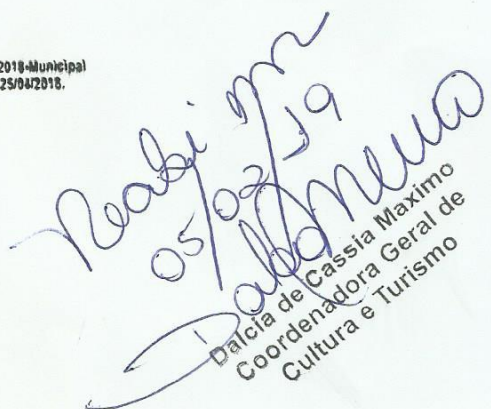 2018-Municipal
25/04/2018.
Recebi em
05/02/19
Dalcia de Cassia Maximo
Coordenadora Geral de
Cultura e Turismo